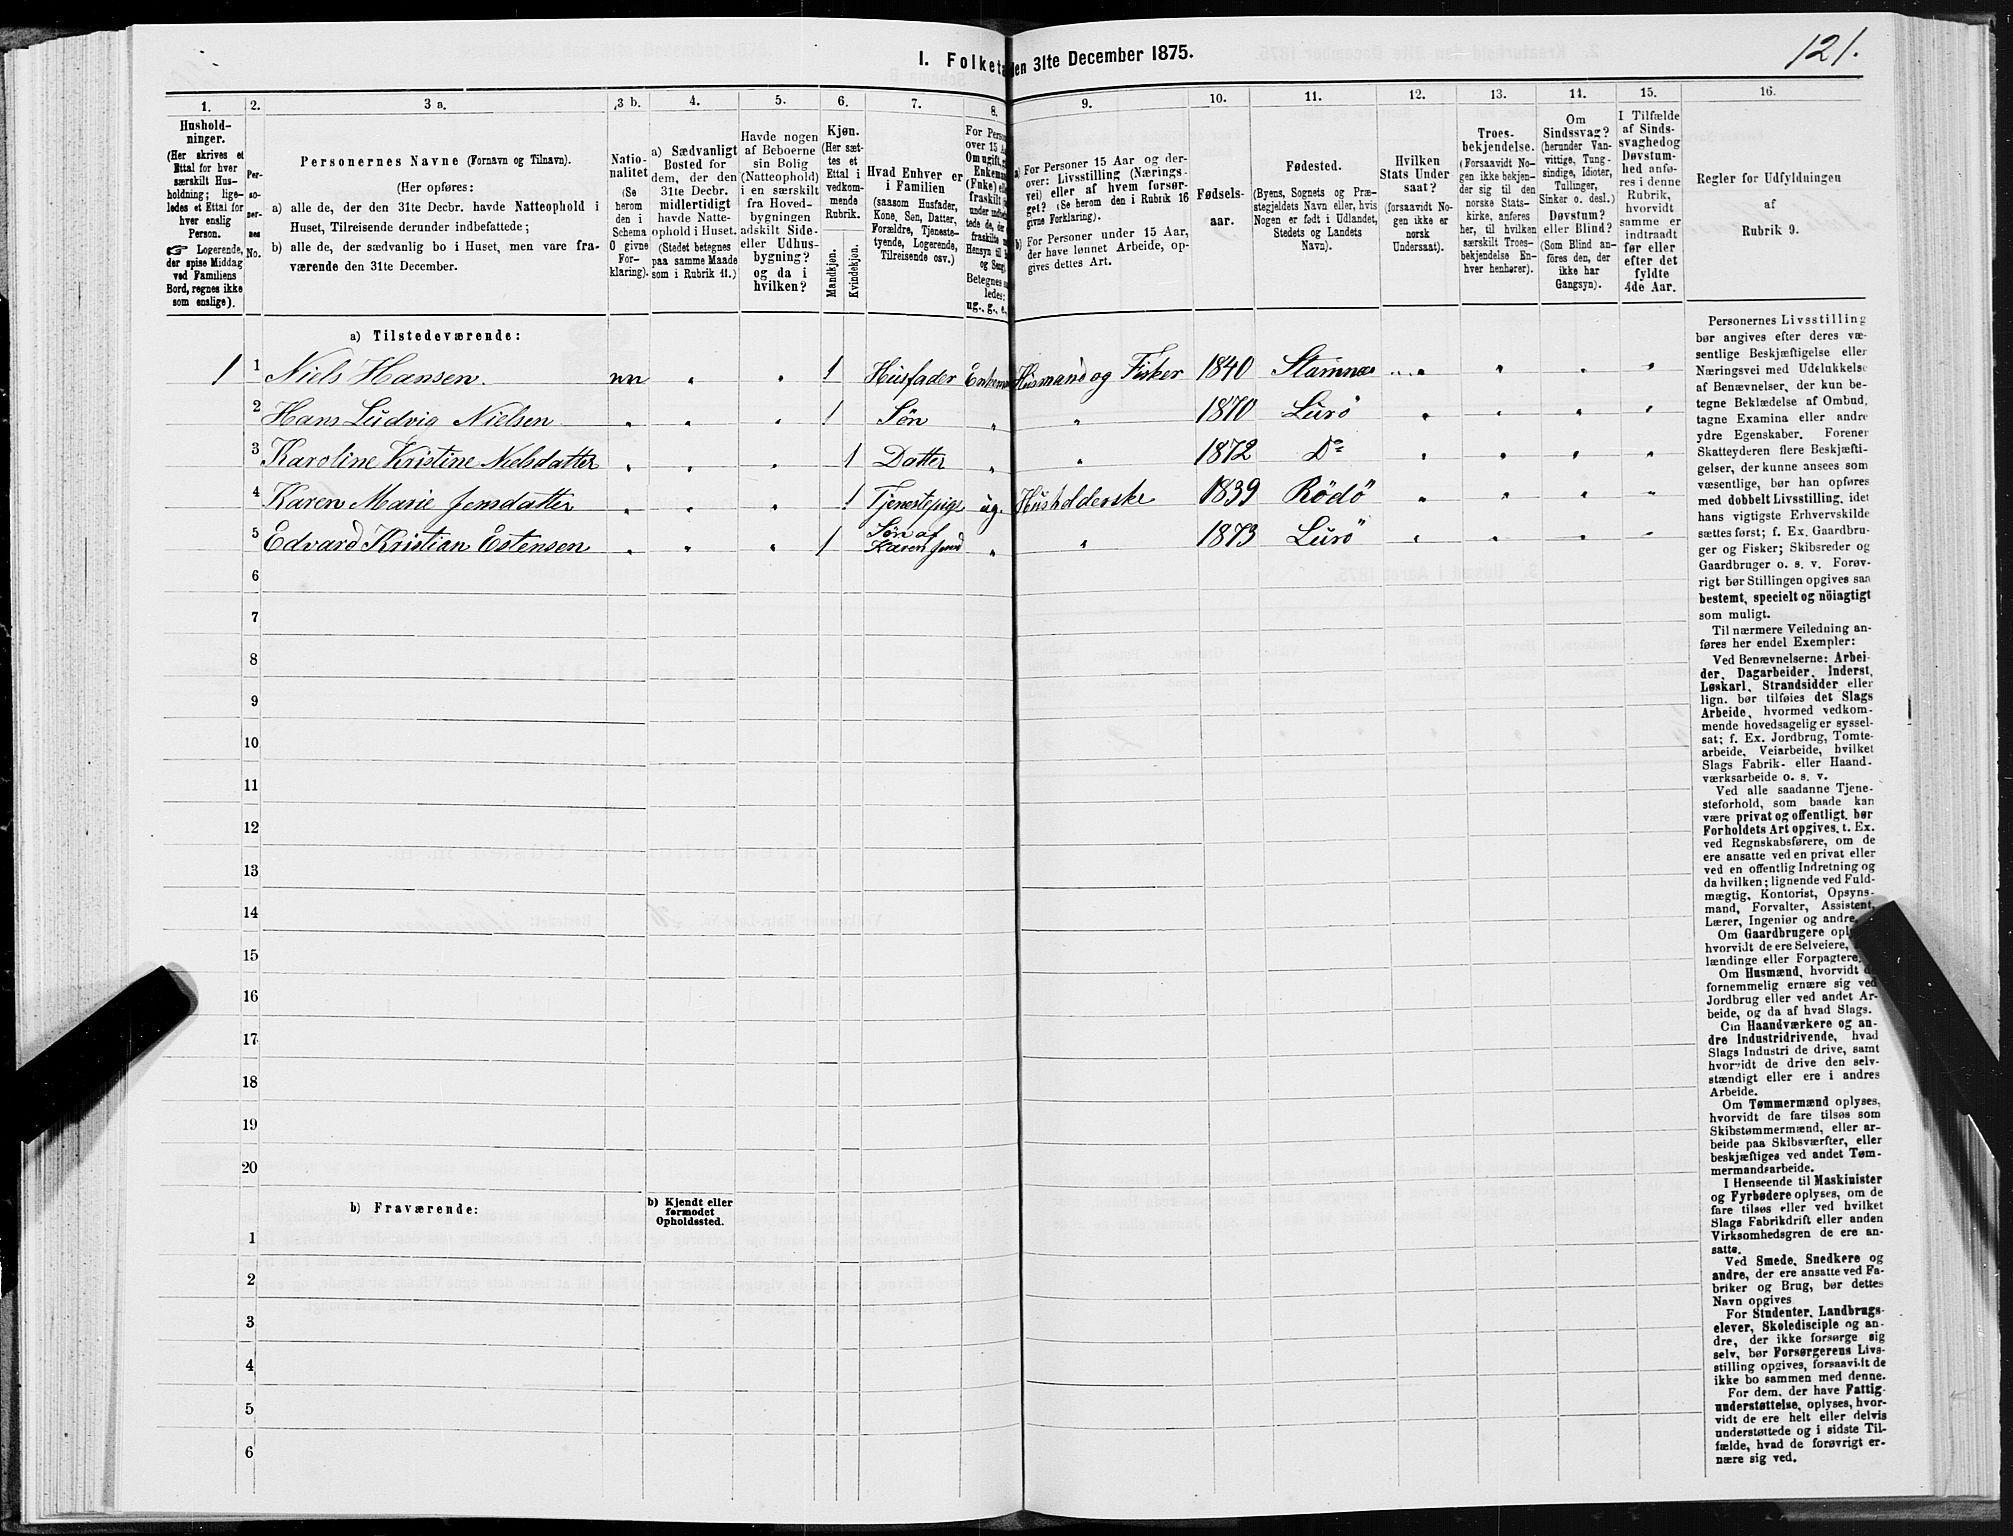 121.
I. Folketæ
den 31te December 1875.
1.
Hushold-
ninger.
(Her skrives et
Ettal for hver
særskilt Hus-
holdning; lige-
ledes et Ettal for
hver enslig
Person.
☞ Logerende,
der spise Middag
ved Familiens
Bord, regnes ikke
som enslige).
2.
Per-
so-
ner-
nes
No.
3 a.
Personernes Navne (Fornavn og Tilnavn).
(Her opføres:
a) alle de, der den 31te Decbr. havde Natteophold i
Huset, Tilreisende derunder indbefattede;
b) alle de, der sædvanlig bo i Huset, men vare fra-
værende den 31te December.
3 b.
Natio-
nalitet
(Se
herom
den i
Schema
O givne
For-
klaring).
4.
a) Sædvanligt
Bosted for
dem, der den
31te Decbr.
midlertidigt
havde Natte-
ophold i Huset.
(Stedet betegnes
paa samme Maade
som i Rubrik 11.)
5.
Havde nogen
af Beboerne
sin Bolig
(Natteophold)
i en særskilt
fra Hoved-
bygningen
adskilt Side-
eller Udhus-
bygning?
og da i
hvilken?
6.
Kjøn.
(Her sæt-
tes et
Ettal i
vedkom-
mende
Rubrik.
Mandkjøn.
Kvindekjøn.
7.
Hvad Enhver er
i Familien
(saasom Husfader,
Kone, Søn, Datter,
Forældre, Tjeneste-
tyende, Logerende,
Tilreisende osv.)
8.
For Perso
over 15 A
Om ugift,
Enkema
(Enke) ell
fraskilt
under
tede de,
fraskilte
Hensyn til
og Seng
Betegnes
ledes:
ug., g., e.
9.
a) For Personer 15 Aar og der-
over: Livsstilling (Nærings-
vei) eller af hvem forsør-
get? (Se herom den i Rubrik 16
givne Forklaring).
b) For Personer under 15 Aar,
der have lønnet Arbeide, op-
gives dettes Art.
10.
Fødsels-
aar.
11.
Fødested.
(Byens, Sognets og Præ-
stegjeldets Navn eller, hvis
Nogen er født i Udlandet,
Stedets og Landets
Navn).
12.
Hvilken
Stats Under
saat?
(forsaavidt No-
gen ikke er
norsk
Undersaat).
13.
Troes-
bekjendelse.
(Forsaavidt No-
gen ikke bekjen-
der sig til den
norske Stats-
kirke, anføres
her, til hvilken
særskilt Troes-
bekjendelse En-
hver henhører).
14.
Om
Sindssvag?
(herunder Van-
vittige, Tung-
sindige, Idioter,
Tullinger,
Sinker o. desl.)
Døvstum?
eller Blind?
(Som Blind an-
føres den, der
ikke har
Gangsyn).
15.
I Tilfælde
af Sinds-
svaghed og
Døvstum-
hed anfø-
res i denne
Rubrik,
hvorvidt
samme er
indtraadt
før eller
efter det
fyldte
4de Aar.
16.
Regler for Udfyldningen
af
Rubrik 9.
a) Tilstedeværende:
1 1 Niels Hansen. nn " " 1 Husfader Enkem Husmand og Fisker 1840 Stamnæs " " " "
2 Hans Ludvig Nielsen " " " 1 Søn " " 1870 Lurö " " " "
3 Karoline Kristine Nielsdatter " " " 1 Datter " " 1872 Do " " " "
4 Karen Marie Jensdatter " " " 1 Tjenestepige ug. Husholderske 1839 Rödö " " " "
5 Edvard Kristian Estensen " " " 1 Søn af
Karen Jensd " " 1873 Lurö " " " "
6
7
8
9
10
11
12
13
14
15
16
17
18
19
20
b) Fraværende:
b) Kjendt eller
formodet
Opholdssted.
1
2
3
4
5
6
Personernes Livsstilling
bør angives efter deres væ-
sentlige Beskjæftigelse eller
Næringsvei med Udelukkelse
af Benævnelser, der kun be-
tegne Beklædelse af Ombud,
tagne Examina eller andre
ydre Egenskaber. Forener
Skatteyderen flere Beskjæfti-
gelser, der kunne ansees som
væsentlige, bør han opføres
med dobbelt Livsstilling, idet
hans vigtigste Erhvervskilde
sættes først; f. Ex. Gaardbru-
ger og Fisker; Skibsreder og
Gaardbruger o. s. v. Forøv-
rigt bør Stillingen opgives saa
bestemt, specielt og nöiagtigt
som muligt.
Til nærmere Veiledning an-
føres her endel Exempler:
Ved Benævnelserne: Arbei-
der, Dagarbeider, Inderst,
Løskarl, Strandsidder eller
lign. bør tilføies det Slags
Arbeide, hvormed vedkom-
mende hovedsagelig er syssel-
sat; f. Ex. Jordbrug, Tomte-
arbeide, Veiarbeide, hvilket
Slags Fabrik- eller Haand-
værksarbeide o. s. v.
Ved alle saadanne Tjene-
steforhold, som baade kan
være privat og offentligt, bør
Forholdets Art opgives, t. Ex.
ved Regnskabsførere, om de
ere ansatte ved en privat eller
ved en offentlig Indretning og
da hvilken; lignende ved Fuld-
mægtig, Kontorist, Opsyns-
mand, Forvalter, Assistent,
Lærer, Ingeniør og andre.
Om Gaardbrugere oply
hvorvidt de ere Selveiere,
lændinge eller Forpagtere.
Om Husmænd, hvorvidt d
fornemmelig ernære sig ved
Jordbrug eller ved andet Ar-
beide, og da af hvad Slags.
Om Haandværkere og an-
dre Industridrivende, hvad
Slags Industri de drive, samt
hvorvidt de drive den selv-
stændigt eller ere i andres
Arbeide.
Om Tømmermænd oplyses,
hvorvidt de fare tilsøs som
Skibstømmermænd, eller ar-
beide paa Skibsværfter, eller
beskjæftiges ved andet Tøm-
mermandsarbeide.
I Henseende til Maskinister
og Fyrbødere oplyses, om de
fare tilsøs eller ved hvilket
Slags Fabrikdrift eller anden
Virksomhedsgren de ere an-
satte.
Ved Smede, Snedkere og
andre, der ere ansatte ved Fa-
briker og Brug, bør dettes
Navn opgives
For Studenter, Landbrugs-
elever, Skoledisciple og an-
dre, der ikke forsørge sig
selv, bør Forsørgerens Livs-
stilling opgives, forsaavidt de
ikke bo sammen med denne.
For dem, der have Fattig-
understøttelse, oplyses, hvor-
vidt de ere helt eller delvis
understøttede og i sidste Til-
fælde, hvad de forøvrigt er-
nære sig ved.